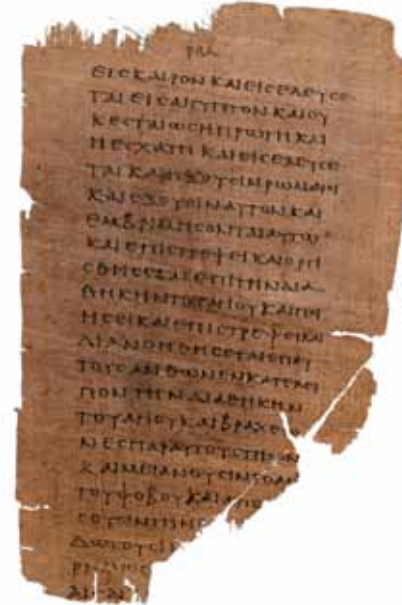 ΕΙΣ ΚΑΙΡΟΝ ΚΑΙ ΕΙΣΕΛΕΥΣΕ
ΤΑΙ ΕΙΣ ΑΙΓΥΠΤΟΝ ΚΑΙ ΟΥ
Κ ΕΣΤΑΙ ΩΣ Η ΠΡΩΤΗ ΚΑΙ
Η ΕΣΧΑΤΗ ΚΑΙ ΕΙΣΕΛΕΥΣΕ
ΤΑΙ ΚΑΙ ΗΞΟΥΣΙΝ ΡΩΜΑΙΟΙ
ΚΑΙ ΕΞΩΣΟΥΣΙΝ ΑΥΤΟΝ ΚΑΙ
ΕΜΒΡΙΜΗΣΟΝΤΑΙ ΑΥΤΩ
ΚΑΙ ΕΠΙΣΤΡΕΨΕΙ ΚΑΙ ΟΡΓΙ
ΣΘΗΣΕΤΑΙ ΕΠΙ ΤΗΝ ΔΙΑ
ΘΗΚΗΝ ΤΟΥ ΑΓΙΟΥ ΚΑΙ ΠΟΙ
ΗΣΕΙ ΚΑΙ ΕΠΙΣΤΡΕΨΕΙ ΚΑΙ
ΔΙΑΝΟΗΘΗΣΕΤΑΙ ΕΠ ΑΥ
ΤΟΥΣ ΑΝΘ ΩΝ ΕΝΚΑΤΕΛΕΙ
ΠΟΝ ΤΗΝ ΔΙΑΘΗΚΗΝ
ΤΟΥ ΑΓΙΟΥ ΚΑΙ ΒΡΑΧΕΙΟ
ΝΕΣ ΠΑΡ ΑΥΤΟΥ ΣΤΗΣΟΝ
ΚΑΙ ΜΙΑΝΟΥΣΙΝ ΤΟ ΑΓ
ΤΟΥ ΦΟΒΟΥ ΚΑΙ ΑΠΟ
ΣΟΥΣΙΝ ΤΗΝ
ΔΩΣΟΥΣΙ